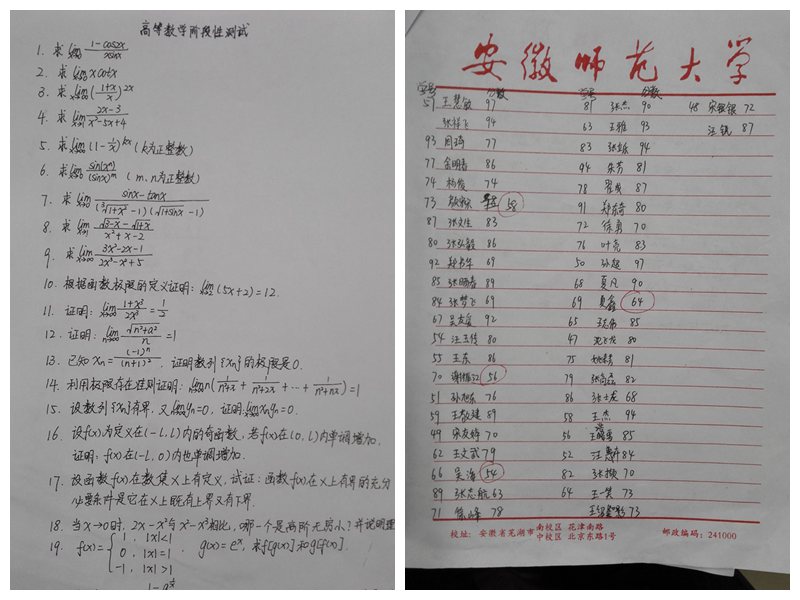 高等数学阶段性测试
1. 求 lim x→0 (1-cos2x)/(xsinx)
2. 求 lim x→0 xcotx
3. 求 lim x→∞ ((1+x)/x)^2x
4. 求 lim x→1 (2x-3)/(x²-5x+4)
5. 求 lim x→∞ (1-1/x)^kx (k为正整数)
6. 求 lim x→0 sin(xⁿ)/(sinx)^m (m、n为正整数)
7. 求 lim x→0 (sinx-tanx)/((∛(1+x²)-1)(√(1+sinx)-1))
8. 求 lim x→1 (√(3-x)-√(1+x))/(x²+x-2)
9. 求 lim x→∞ (3x²-2x-1)/(2x³-x²+5)
10. 根据函数极限的定义证明: lim x→2 (5x+2)=12.
11. 证明: lim x→∞ (1+x³)/(2x³)=1/2
12. 证明: lim n→∞ √(n²+a²)/n=1
13. 已知 xn=(-1)ⁿ/(n+1)², 证明数列{xn}的极限是0.
14. 利用极限存在准则证明: lim n→∞ n(1/(n²+π)+1/(n²+2π)+…+1/(n²+nπ))=1
15. 设数列{xn}有界, 又 lim n→∞ yn=0, 证明 lim n→∞ xnyn=0.
16. 设f(x)为定义在(-L,L)内的奇函数, 若f(x)在(0,L)内单调增加,
证明: f(x)在(-L,0)内也单调增加.
17. 设函数f(x)在数集X上有定义, 试证: 函数f(x)在X上有界的充分
必要条件是它在X上既有上界又有下界.
18. 当x→0时, 2x-x²与x²-x³相比, 哪一个是高阶无穷小? 并说明理
19. f(x)={1, |x|<1
0, |x|=1, g(x)=eˣ, 求f[g(x)]和g[f(x)].
-1, |x|>1
安徽师范大学
学号 分数 学号 分数
57 王慧敏 97 81 张杰 90 48 宋银银 72
张祥飞 94 63 王雅 93 汪锐 87
93 周琦 77 83 94
77 金明春 86 94 朱芳 81
74 杨俊 74 78 翟曼 87
73 58 91 80
87 张文生 83 72 徐勇 70
80 张弘毅 86 76 叶亮 83
92 69 50 孙超 97
85 张晒春 89 68 夏凡 90
84 张梦飞 69 69 64
67 吴友金 92 65 王伟 85
54 汪玉传 80 47 沈飞龙 80
55 王东 86 75 81
70 56 79 82
51 孙旭东 76 86 张士龙 68
59 王敬建 89 58 王杰 94
49 宋友婷 70 56 85
62 王文武 79 52 汪 84
66 吴海 54 82 张 70
89 张志航 63 64 王一笑 73
71 徐峰 78 73
校址: 安徽省芜湖市 南校区 花津南路
中校区 北京东路1号 邮政编码: 241000